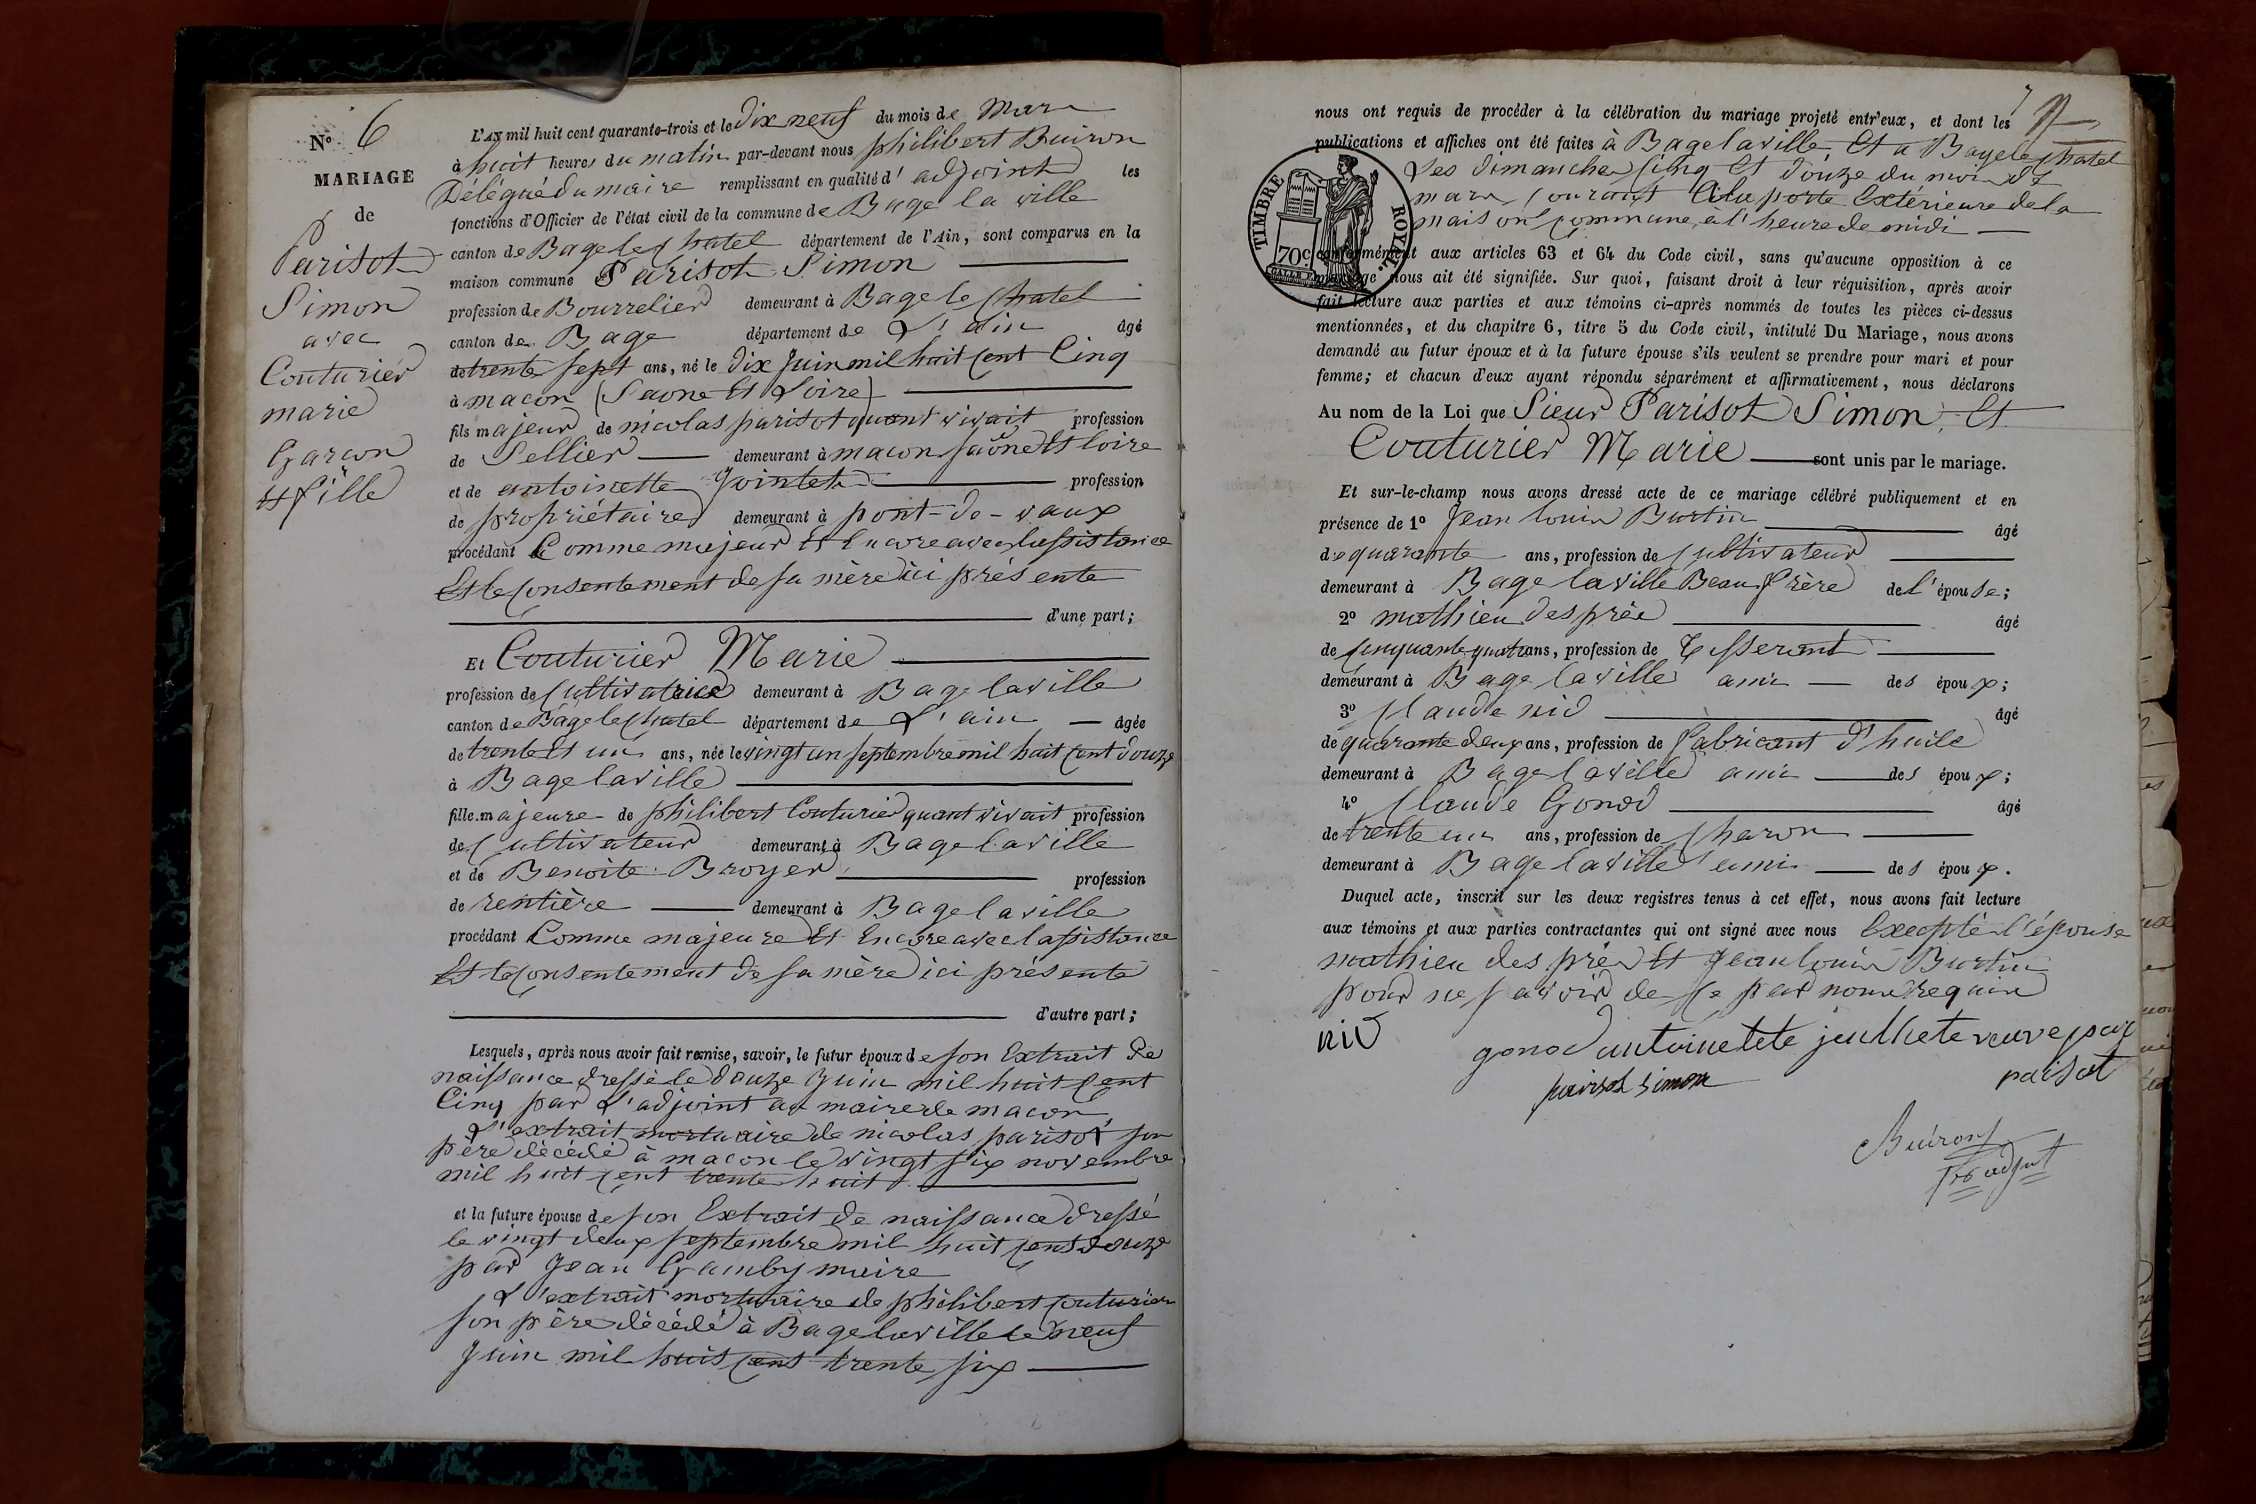 N° 6
MARIAGE
de
Parisot
Simon
avec
Couturier
marie
Garcon
et fille
L'AN mil huit cent quarante-trois et le dix neuf du mois de Mars
à huit heures du matin par-devant nous philibert Buiron
Délégué du maire remplissant en qualité d'adjoint les
fonctions d'Officier de l'état civil de la commune de Bage la ville
canton de Bage le chatel département de l'Ain, sont comparus en la
maison commune Parisot Simon
profession de Bourrelier demeurant à Bage le chatel
canton de Bage département de L'ain âgé
de trente sept ans, né le dix Juin mil huit cent Cinq
à macon (Saone Et Loire)
fils majeur de nicolas parisot quant vivait profession
de Sellier demeurant à macon saône Et loire
et de antoinette Jointet profession
de propriétaire demeurant à pont-de-vaux
procédant Comme majeur Et Encore avec lassistance
Et le consentement de sa mère ici présente
d'une part;
Et Couturier Marie
profession de cultivatrice demeurant à Bage laville
canton de Bage le chatel département de L'ain âgée
de trente Et un ans, née le vingt un septembre mil huit cent douze
à Bage laville
fille majeure de philibert Couturier quant vivait profession
de cultivateur demeurant à Bage laville
et de Benoite Broyer profession
de rentière demeurant à Bage laville
procédant Comme majeure Et Encore avec lassistance
Et le consentement de sa mère ici présente
d'autre part;
Lesquels, après nous avoir fait remise, savoir, le futur époux de son Extrait de
naissance dressé le douze Juin mil huit cent
Cinq par L'adjoint au maire de macon
L'extrait mortuaire de nicolas parisot son
père décédé à macon le vingt six novembre
mil huit cent trente huit
et la future épouse de son Extrait de naissance dressé
le vingt deux septembre mil huit cent douze
par Jean Gamby maire
L'extrait mortuaire de philibert couturier
son père décédé à Bage laville le neuf
Juin mil huit cent trente six
7
nous ont requis de procéder à la célébration du mariage projeté entr'eux, et dont les
publications et affiches ont été faites à Bage laville Et a Bage le chatel
Les dimanches cinq Et douze du mois de
mars courant à la porte Extérieure de la
maison commune, a l'heure de midi
TIMBRE ROYAL.
70c
conformément aux articles 63 et 64 du Code civil, sans qu'aucune opposition à ce
mariage nous ait été signifiée. Sur quoi, faisant droit à leur réquisition, après avoir
fait lecture aux parties et aux témoins ci-après nommés de toutes les pièces ci-dessus
mentionnées, et du chapitre 6, titre 5 du Code civil, intitulé Du Mariage, nous avons
demandé au futur époux et à la future épouse s'ils veulent se prendre pour mari et pour
femme; et chacun d'eux ayant répondu séparément et affirmativement, nous déclarons
Au nom de la Loi que Sieur Parisot Simon, Et
Couturier Marie sont unis par le mariage.
Et sur-le-champ nous avons dressé acte de ce mariage célébré publiquement et en
présence de 1° Jean louis Burtin âgé
de quarante ans, profession de cultivateur
demeurant à Bage laville Beau frère de l'épouse;
2° mathieu des près âgé
de cinquante quatre ans, profession de Tisserant
demeurant à Bage laville amis des époux;
3° claude nid âgé
de quarante deux ans, profession de fabricant d'huile
demeurant à Bage laville amis des époux;
4° claude Gonod âgé
de trente un ans, profession de charon
demeurant à Bage laville amis des époux.
Duquel acte, inscrit sur les deux registres tenus à cet effet, nous avons fait lecture
aux témoins et aux parties contractantes qui ont signé avec nous Excepté l'épouse
mathieu des près Et Jean louis Burtin
pour ne savoir de ce par nous requis
nid
gonod antoinetete jeulhete veuve par
parisot simon
paisot
Buiron
adjoint